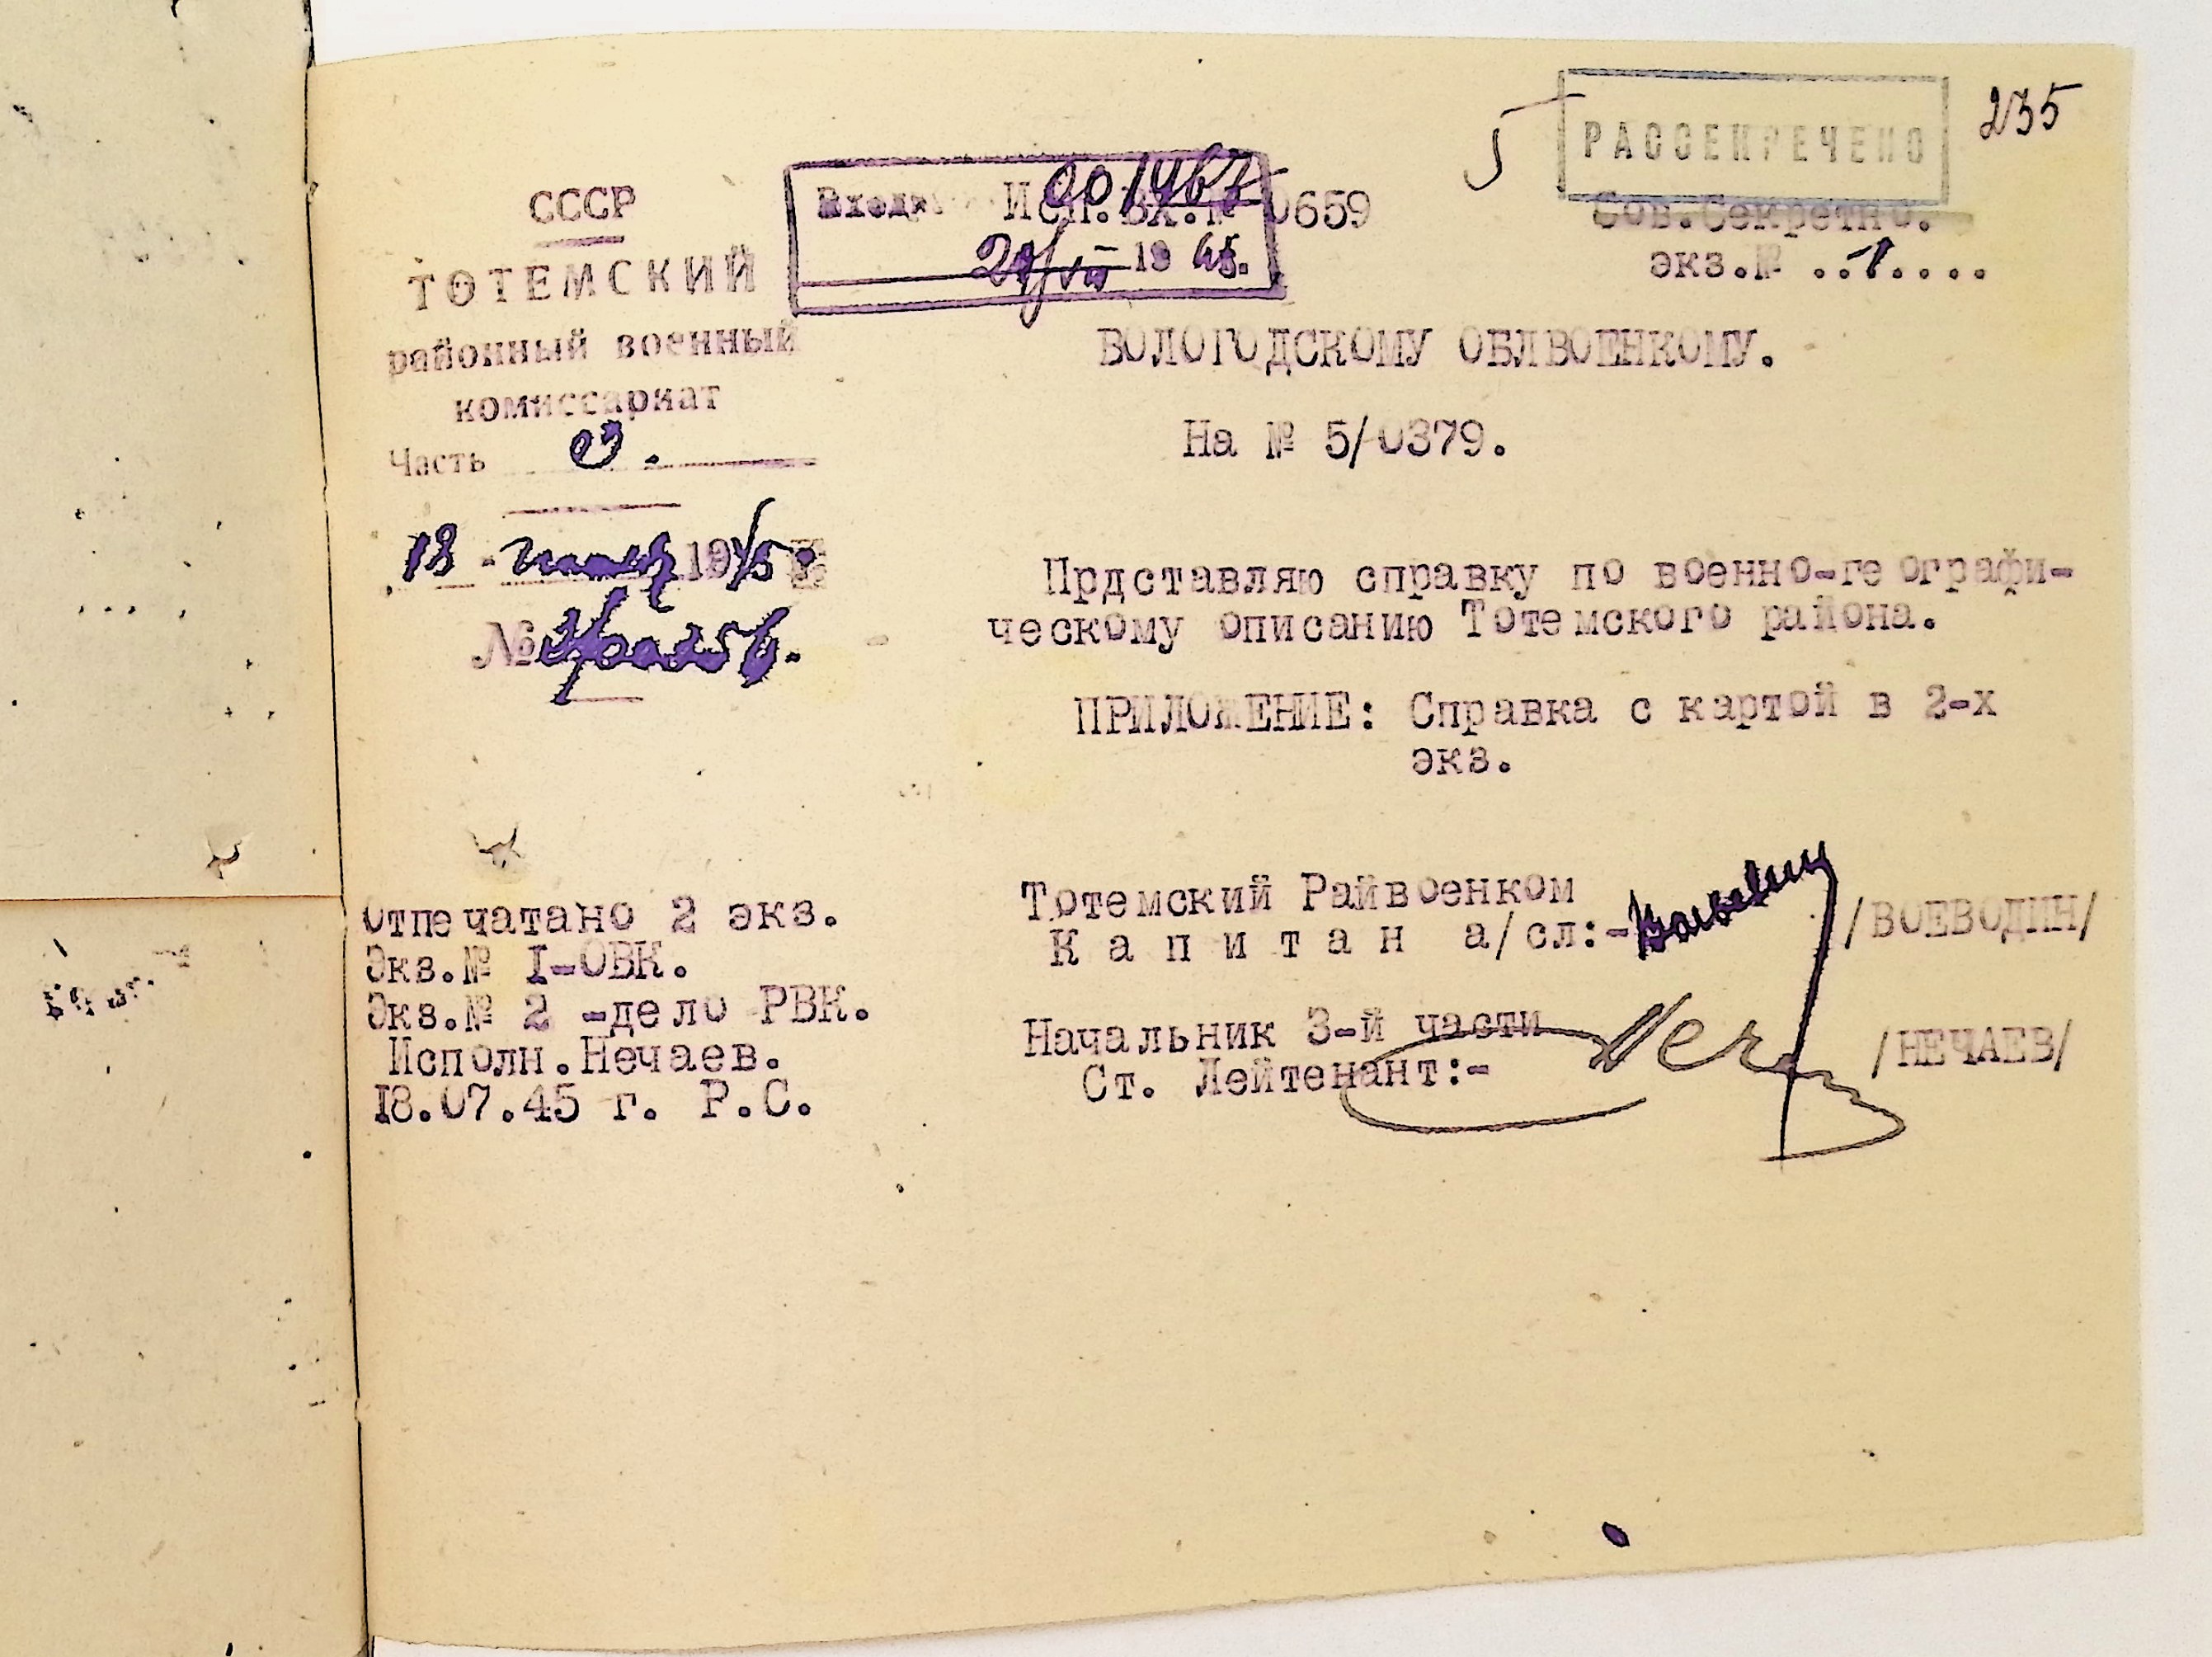 235
РАССЕКРЕЧЕНО
Сов.Секретно.
экз.№ ..1....
СССР
ТОТЕМСКИЙ
районный военный
комиссариат
Часть 3.
18 - июля 1945 г.
№
Исп.вх.№ 0659
21/VII 19 45.
ВОЛОГОДСКОМУ ОБЛВОЕНКОМУ.
На № 5/0379.
Прдставляю справку по военно-географи-
ческому описанию Тотемского района.
ПРИЛОЖЕНИЕ: Справка с картой в 2-х
экз.
Тотемский Райвоенком
Капитан а/сл:- /ВОЕВОДИН/
Начальник 3-й части
Ст. Лейтенант:- /НЕЧАЕВ/
Отпечатано 2 экз.
Экз.№ I-ОВК.
Экз.№ 2 -дело РВК.
Исполн.Нечаев.
I8.07.45 г. Р.С.